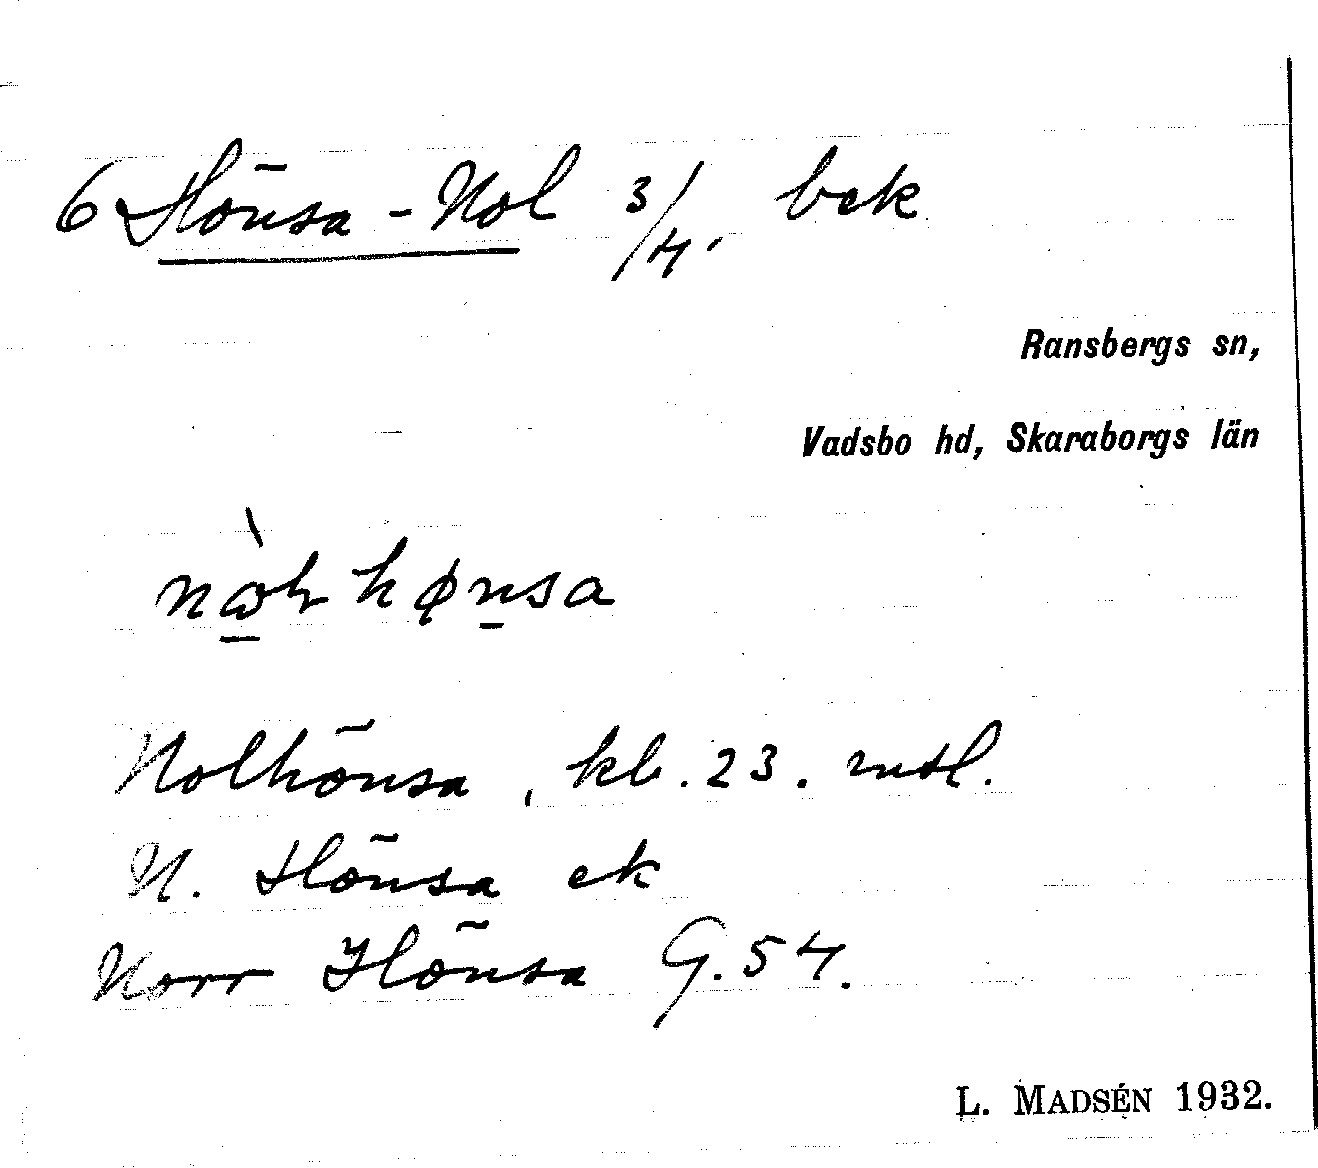 6 Hönsa - Nol 3/4. bek
Ransbergs sn,
Vadsbo hd, Skaraborgs län
hønsa
Nolhönsa, kb. 23. mtl.
N. Hönsa ek
Norr Hönsa G. 54.
L. MADSÉN 1932.